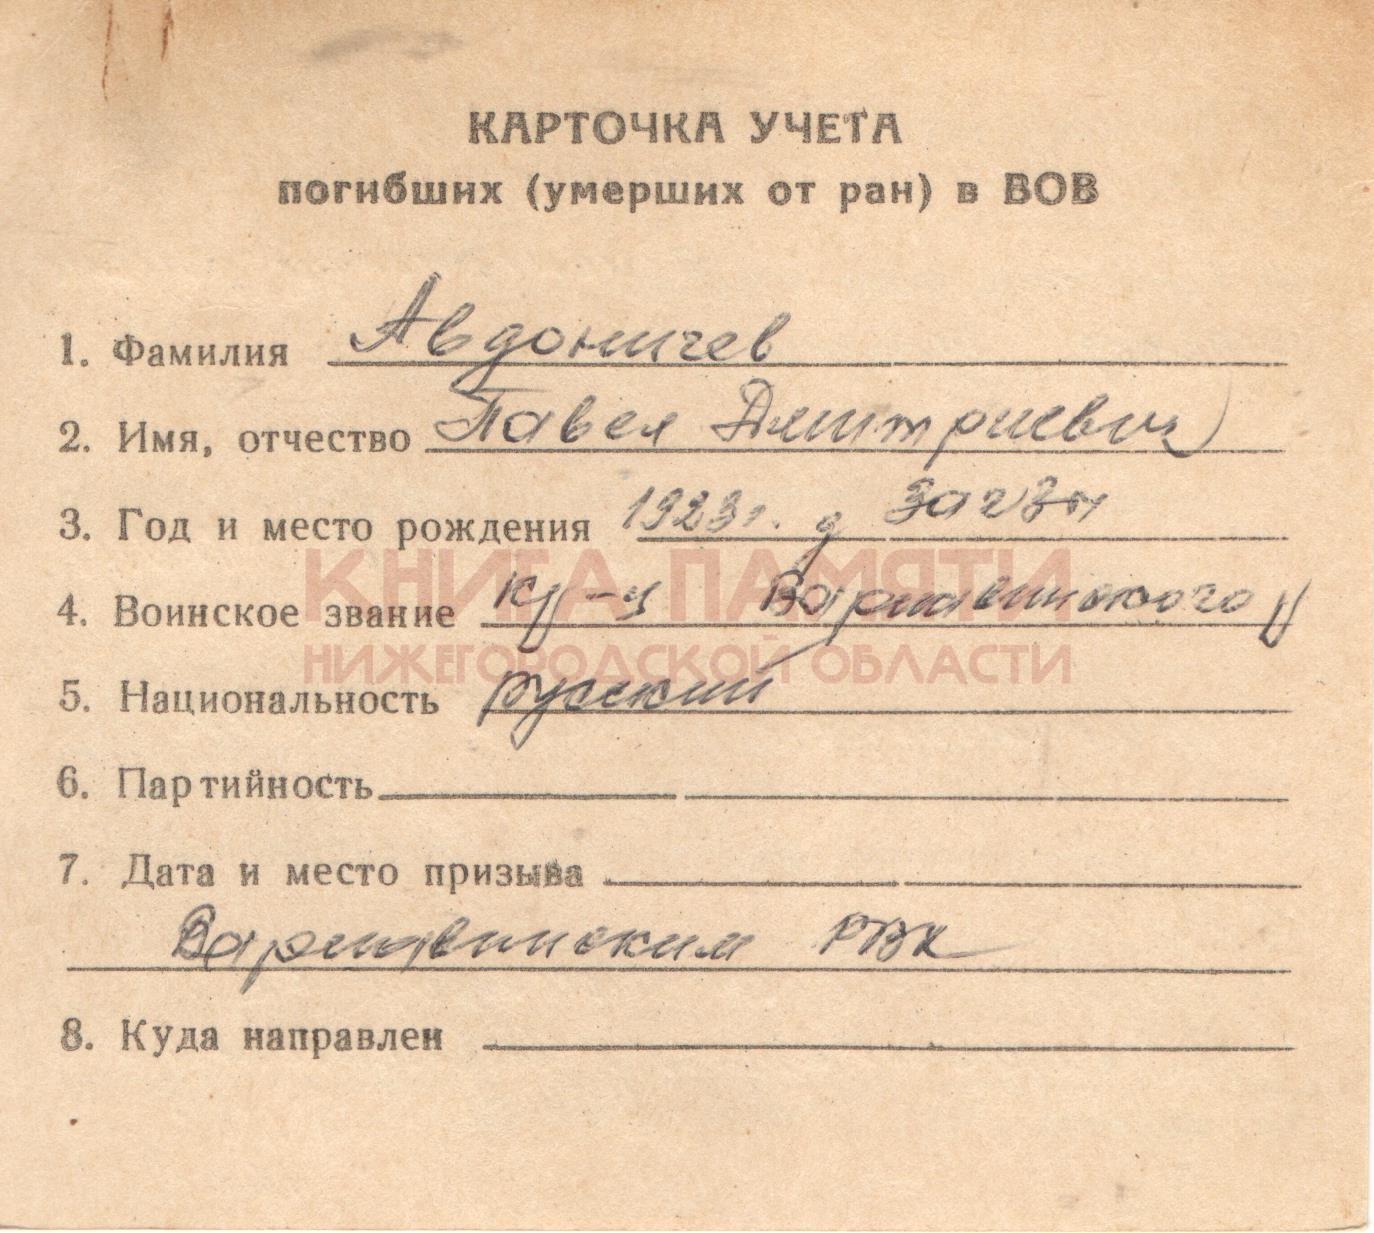 КАРТОЧКА УЧЕТА
погибших (умерших от ран) в ВОВ
1. Фамилия Авдоничев
2. Имя, отчество Павел Дмитриевич
3. Год и место рождения 1923г. д
4. Воинское звание кр-ц Варнавинского р
КНИГА ПАМЯТИ
НИЖЕГОРОДСКОЙ ОБЛАСТИ
5. Национальность русский
6. Партийность
7. Дата и место призыва
Варнавинским РВК
8. Куда направлен